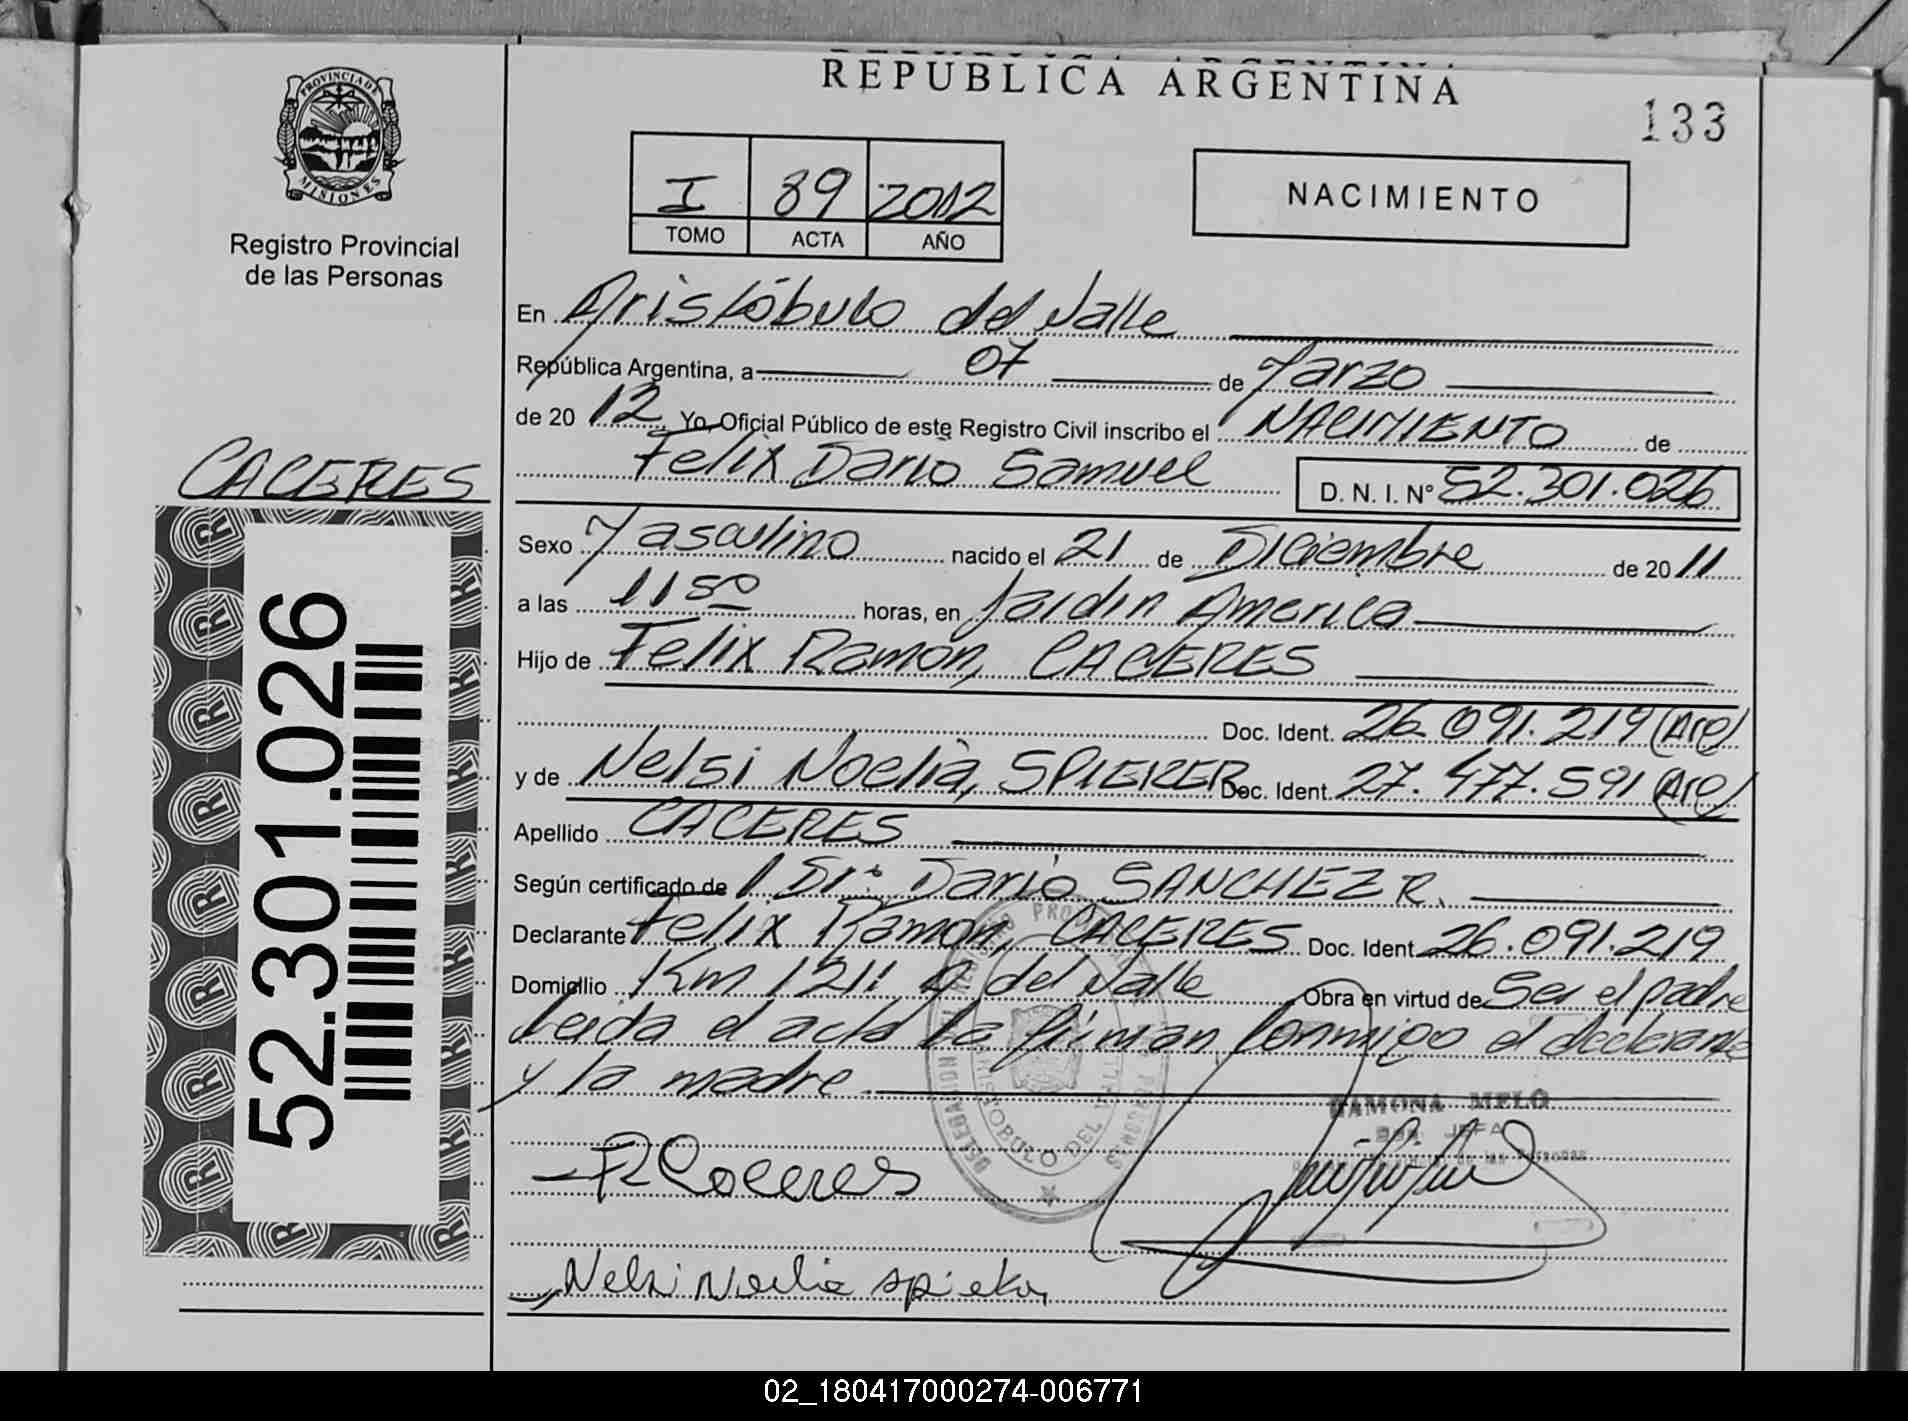 REPUBLICA ARGENTINA
133
PROVINCIA DE
MISIONES
Registro Provincial
de las Personas
I 89 2012
TOMO ACTA AÑO
NACIMIENTO
En Aristóbulo del Valle
República Argentina, a 07 de Marzo
de 20 12 Yo, Oficial Público de este Registro Civil inscribo el NACIMIENTO de
Felix Dario Samuel D. N. I. Nº 52.301.026
CACERES
52.301.026
Sexo Masculino nacido el 21 de Diciembre de 20 11
a las 11 50 horas, en Jardin America
Hijo de Felix Ramón, CACERES
Doc. Ident. 26.091.219 (Arg)
y de Nelsi Noelia, SPIEKER Doc. Ident. 27.477.591 (Arg)
Apellido CACERES
Según certificado de / Dr. Dario SANCHEZ R.
Declarante Felix Ramón, CACERES Doc. Ident. 26.091.219
Domicilio Km 1211 A del Valle Obra en virtud de Ser el padre
Leida el acta la firman conmigo el declarante
y la madre
RAMONA MELO
JEFA
ARISTOBULO DEL VALLE
F R Caceres
Nelsi Noelia spieker
02_180417000274-006771